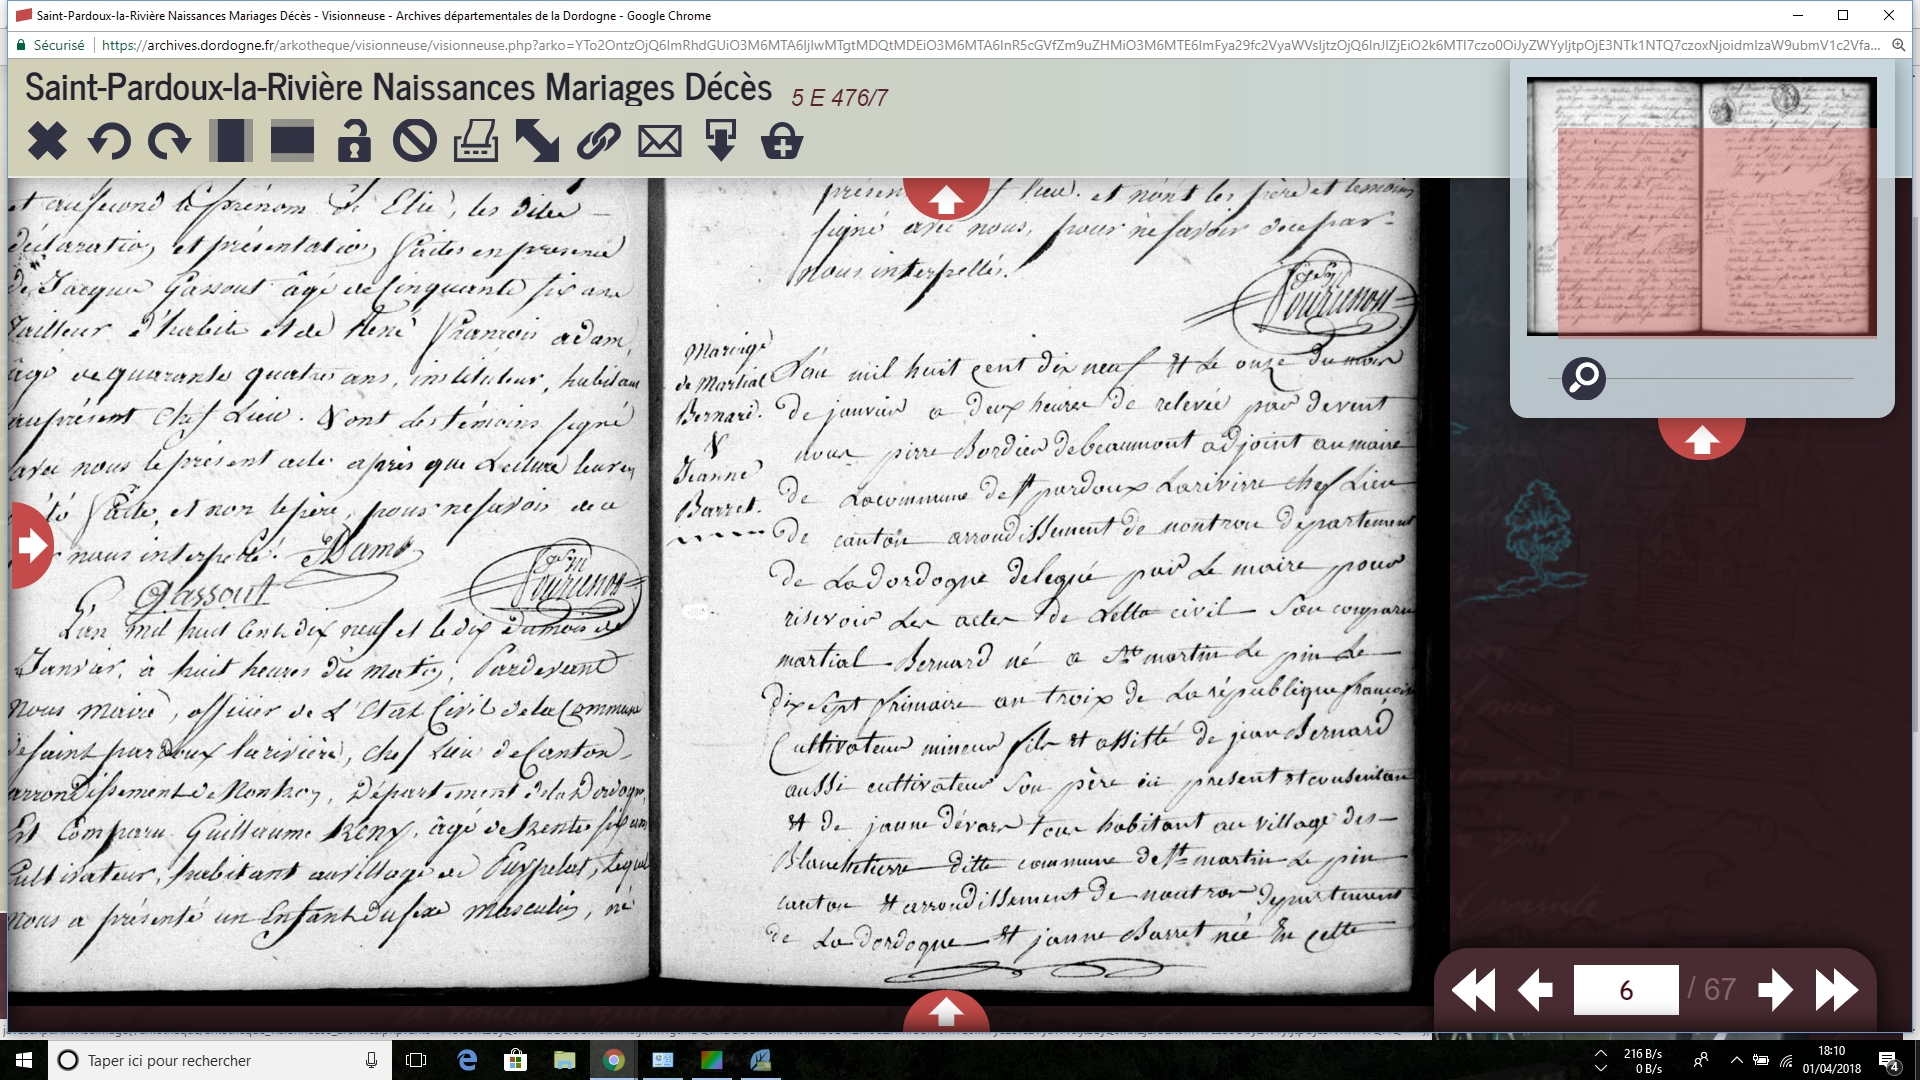 Saint-Pardoux-la-Rivière Naissances Mariages Décès - Visionneuse - Archives départementales de la Dordogne - Google Chrome
Sécurisé
Saint-Pardoux-la-Rivière Naissances Mariages Décès 5 E 476/7
et au second le prénom de Elie, les dites
déclaration et présentation faites en presence
de Jacques Gassout âgé de Cinquante six ans
tailleur d'habits et de René François adam,
âgé de quarante quatre ans, instituteur, habitans
au présent Chef Lieu. & ont des témoins signé
avec nous le présent acte après que Lecture leur en
été faite, et non le père, pour ne savoir de ce
nous interpellé. Adam
Gassout
L'an mil huit Cent dix neuf et le dix du mois de
Janvier, à huit heures du matin, Pardevant
Nous maire, officier de L'Etat Civil de la Commune
de saint pardoux larivière, chef Lieu de Canton,
arrondissement de Nontron, Département de la Dordogne,
Est Comparu Guillaume âgé de trente six ans
Cultivateur, habitant au village de Puypelat, lequel
Nous a présenté un Enfant du sexe masculin, né
présent chef lieu. et n'ont les père et temoins
signé avec nous, pour ne savoir de ce par
nous interpellés.
Mariage
de Martial
Bernard.
&
Jeanne
Barret.
L'an mil huit cent dix neuf & Le onze du mois
de janvier a deux heures de relevée par devent
nous pierre Bordier debeaumont adjoint au maire
de La commune de St pardoux Larivierre chef Lieu
de canton arroudissement de nontron departement
de La Dordogne delegué par Le maire pour
riservoir Les actes de Letta civil Son comparu
martial Bernard né a St martin Le pin Le
dix Sept frimaire an troix de La république francoise
Cultivateur mineur fils & assitté de jean Bernard
aussi cultivateur Son père ici present & consentant
& de janne dévars tous habitant au village des
Blancheterre ditte commune de St martin Le pin
canton & arroudissement de nontron Departement
de La dordogne & janne Barret née En cette
6 / 67
Taper ici pour rechercher
216 B/s
0 B/s
18:10
01/04/2018
4